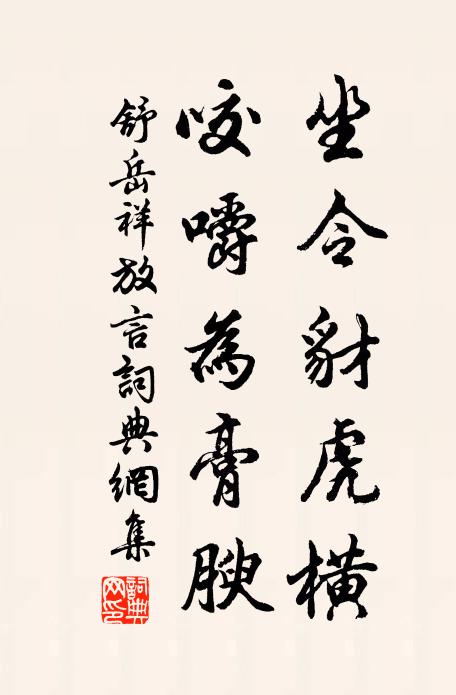 坐令豺虎橫
咬嚼為膏腴
舒岳祥放言詞典網集
詞典网印